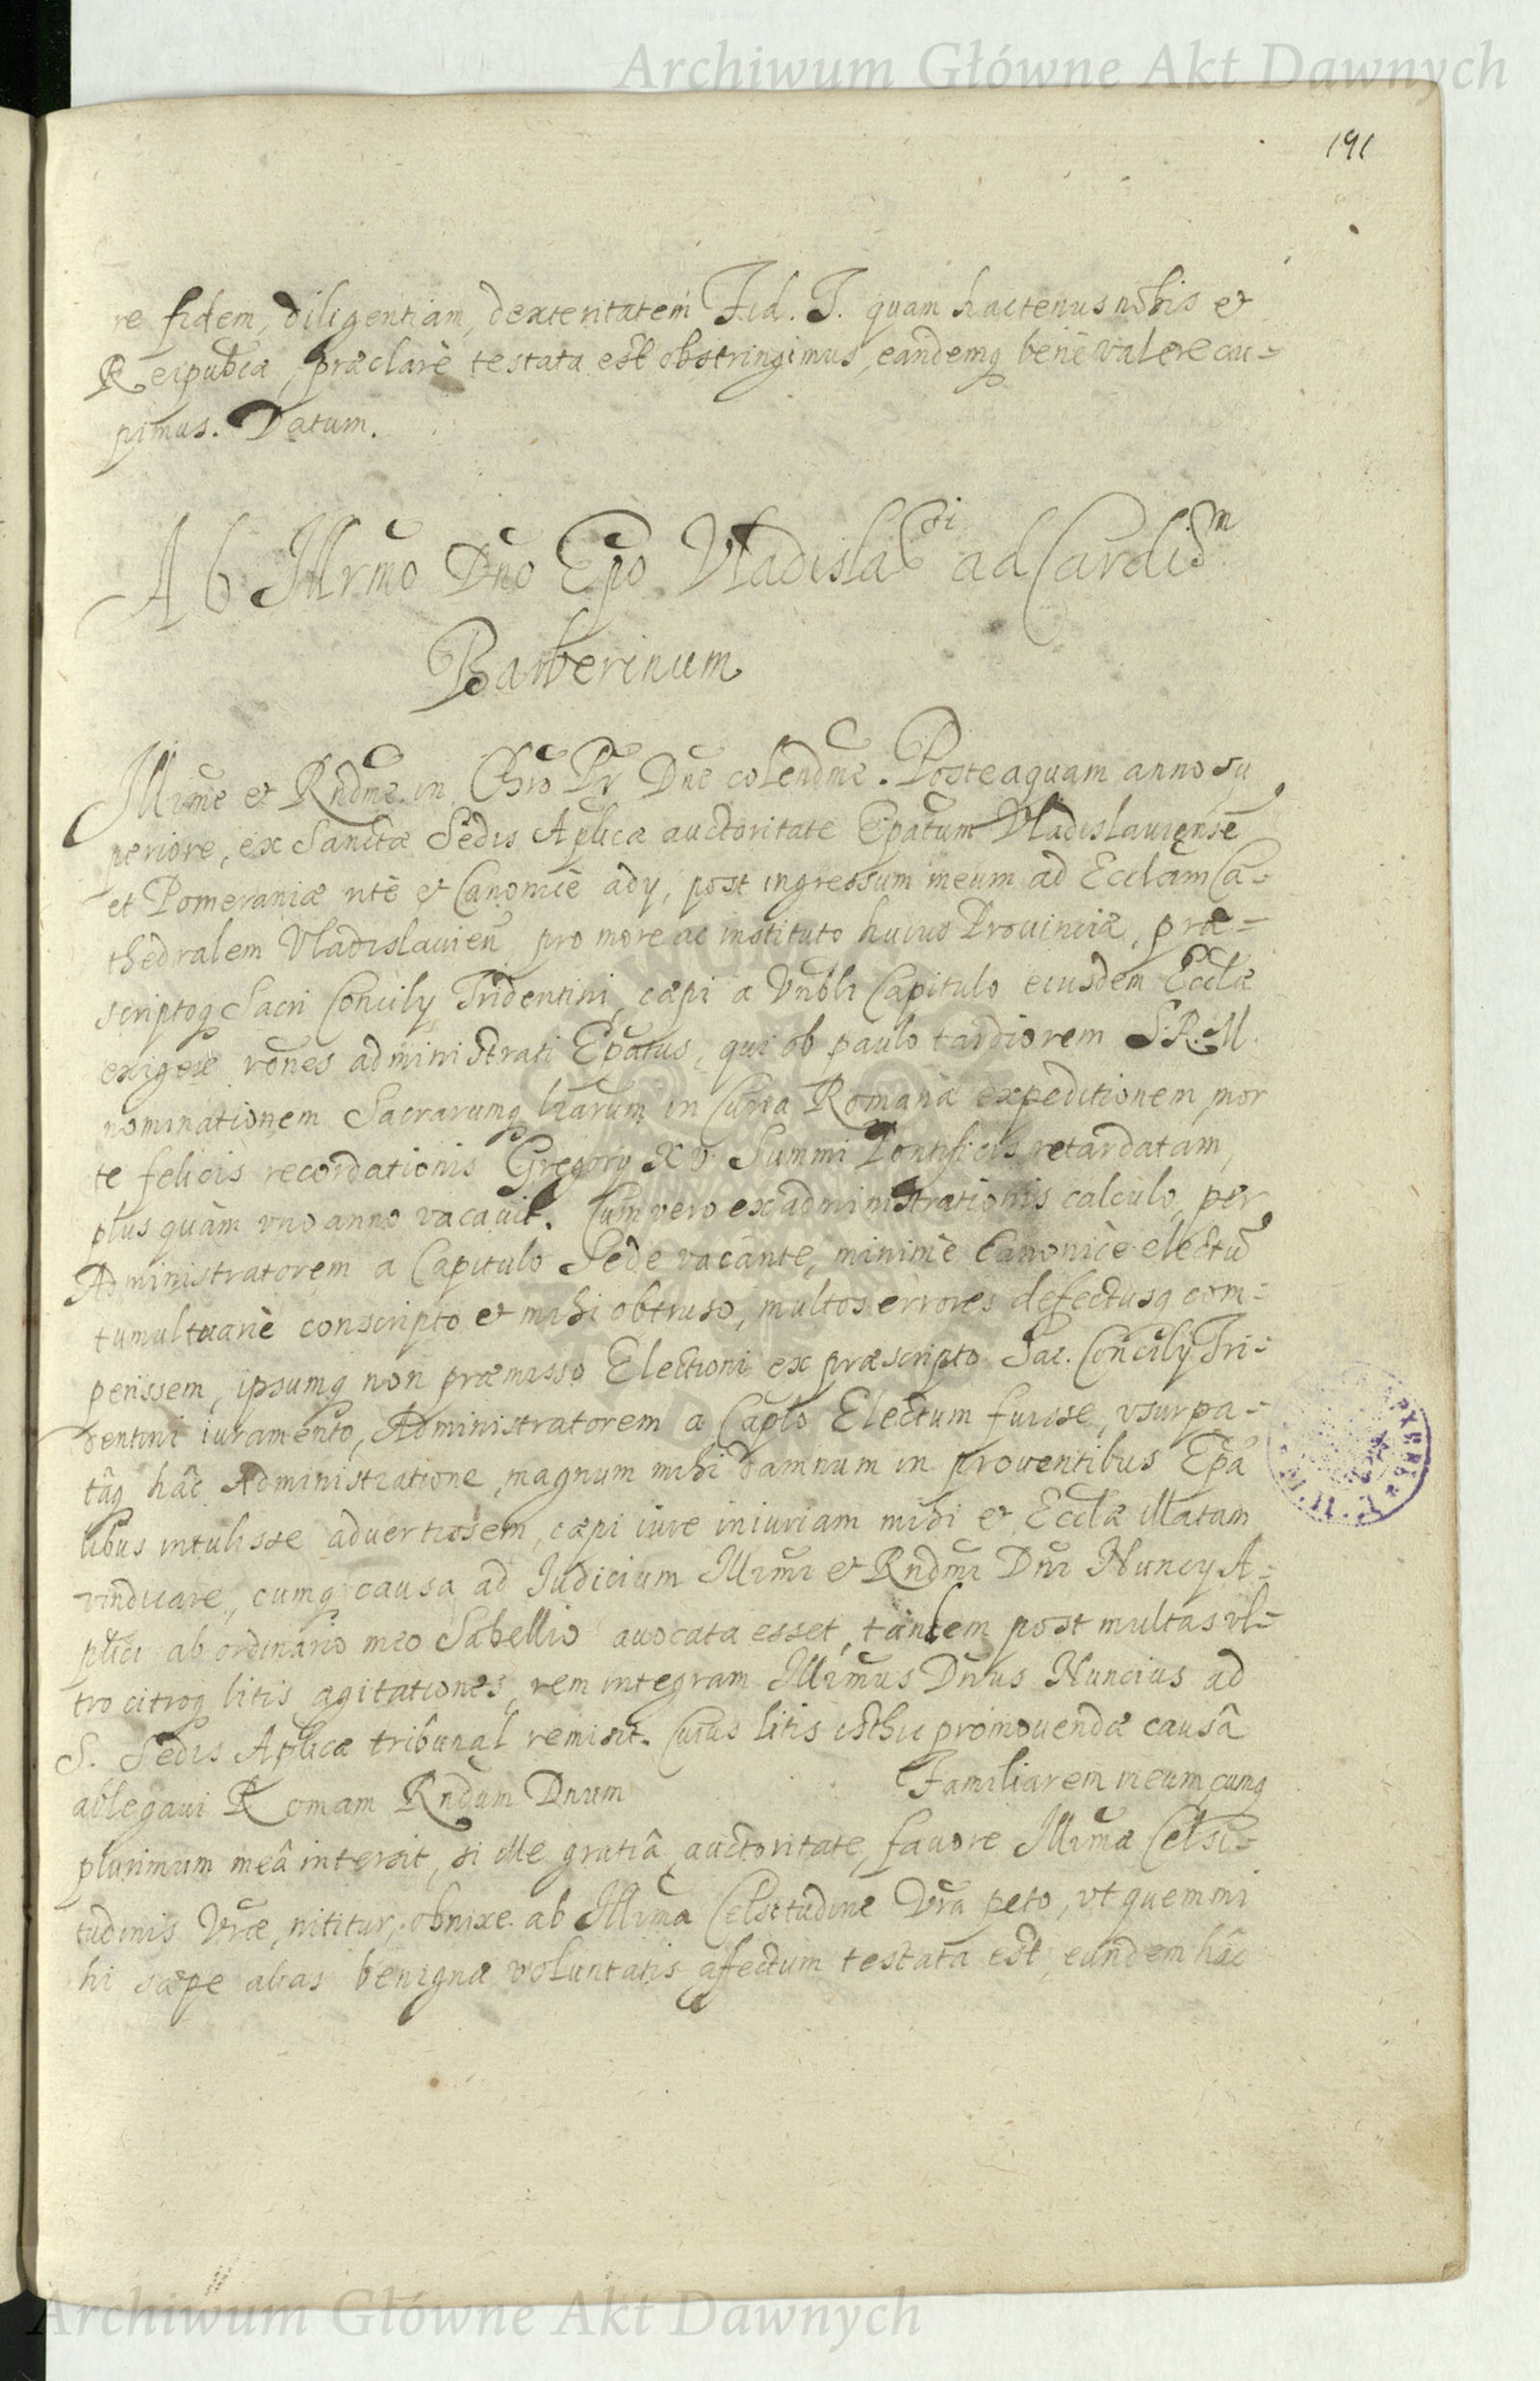 Archiwum Główne Akt Dawnych
191
re fidem, diligentiam, dexteritatem Fid. T. quam hactenus nobis et
Reipublcæ, præclarè testata est obstringimus, eandemq benè valere cu-
pimus. Datum.
Ab Illrmo Dno Epo Vladislauri ad Cardi
Barberinum
Illrme et Rndme in Chro Pr Dne colendme. Posteaquam anno su
periore, ex Sanctæ Sedis Aplicæ auctoritate Epatum Vladislauiense
et Pomeraniæ ritè et Canonicè adÿ, post ingressum meum ad Ecclam Ca-
thedralem Vladislauien pro more ac instituto huius Prouinciæ, præ-
scriptoq Sacri Concilÿ Tridentini, cæpi a Vnbli Capitulo eiusdem Ecclæ
exigere rones administrati Epatus, qui ob paulo tardiorem S.R.M.
nominationem Sacrarumq lrarum in Curia Romana expeditionem, mor
te felicis recordationis Gregorÿ XV. Summi Pontificis retardatam,
plus quàm vno anno vacauit. Cum vero ex administrationis calculo, per
Administratorem a Capitulo Sede vacante, minimè Canonicè electũ
tumultuariè conscripto et mihi obtruso, multos errores defectusq com-
perissem, ipsumq non præmisso Electioni ex præscripto Sac. Concilÿ Tri-
dentini iuramento, Administratorem a Caplo Electum fuisse, vsurpa-
tâq hâc Administratione, magnum mihi damnum in prouentibus Epa
libus intulisse aduertissem, cæpi iure iniuriam mihi et Ecclæ illatam
vindicare, cumq causa ad Iudicium Illrmi et Rndmi Dni Nuncÿ A-
plici ab ordinario meo Sabellio auocata esset, tandem post multas vl-
tro citroq litis agitationes, rem integram Illrmus Dnus Nuncius ad
S. Sedis Aplicæ tribunal remisit. Cuius litis isthic promouendæ causâ
ablegaui Romam Rndum Dnum Familiarem meum, cumq
plurimum meâ intersit, si ille gratiâ, auctoritate, fauore Illrmæ Celsi-
tudinis Vræ, nititur, obnixe ab Illrma Celsitudine Vra peto, vt quem mi
hi sæpe alias benignæ voluntatis affectum testata est, eundem hâc
Archiwum Główne Akt Dawnych